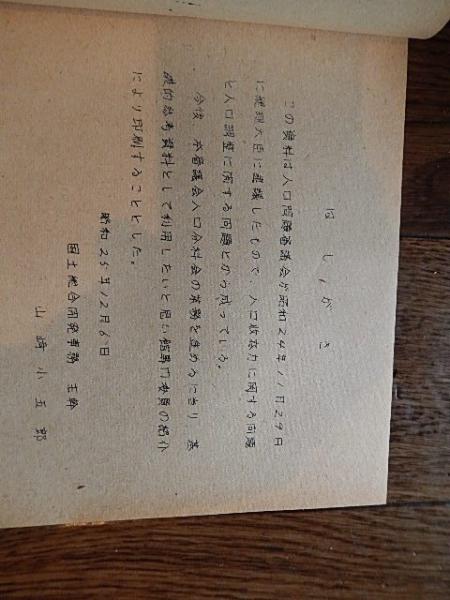 はしがき
この資料は人口問題審議会が昭和24年11月29日
に総理大臣に建議したもので、人口収容力に関する問題
と人口調整に関する問題とから成っている。
今後、本審議会人口分科会の業務を進めるにきり、基
礎的参考資料として利用したいと思い舘専門委員の紹介
により印刷することとした。
昭和25年12月6日
国土総合開発事務 主幹
山崎小五郎